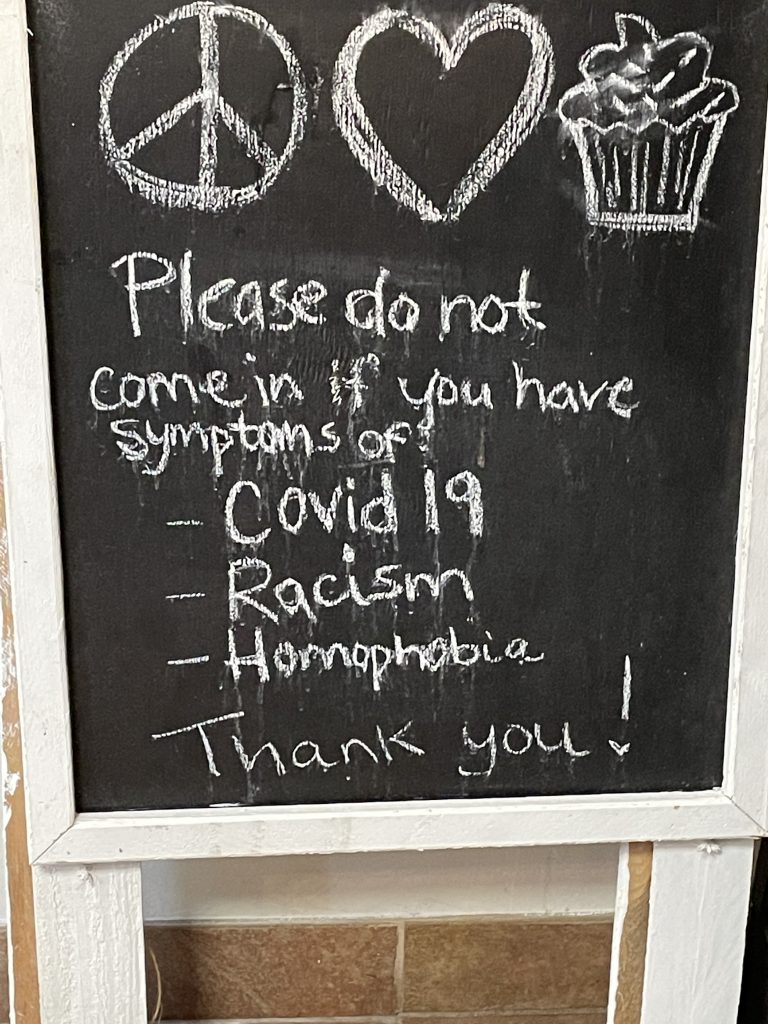 Please do not
come in if you have
symptoms of:
- Covid 19
- Racism
- Homophobia
Thank you!